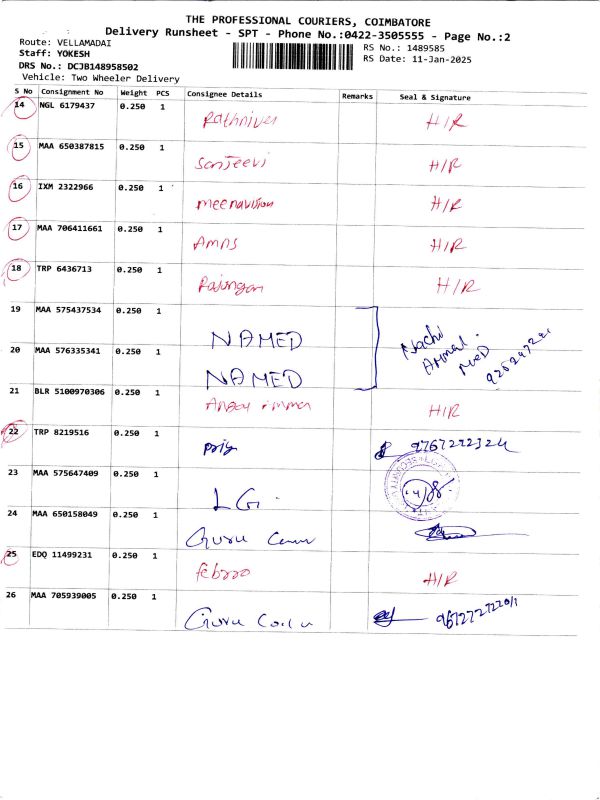 THE PROFESSIONAL COURIERS, COIMBATORE
Delivery Runsheet - SPT - Phone No.:0422-3505555 - Page No.:2
Route: VELLAMADAI
RS No.: 1489585
Staff: YOKESH
RS Date: 11-Jan-2025
DRS No.: DCJB148958502
Vehicle: Two Wheeler Delivery
S No Consignment No Weight PCS Consignee Details Remarks Seal & Signature
14 NGL 6179437 0.250 1 H/R
15 MAA 650387815 0.250 1 Sanjeevi H/R
16 IXM 2322966 0.250 1 meenavision H/R
17 MAA 706411661 0.250 1 Amns H/R
18 TRP 6436713 0.250 1 H/R
19 MAA 575437534 0.250 1 NAMED
20 MAA 576335341 0.250 1 NAMED
21 BLR 5100970306 0.250 1 H/R
22 TRP 8219516 0.250 1
23 MAA 575647409 0.250 1 LGi
24 MAA 650158049 0.250 1 Guru
25 EDQ 11499231 0.250 1 H/R
26 MAA 705939005 0.250 1 Guru